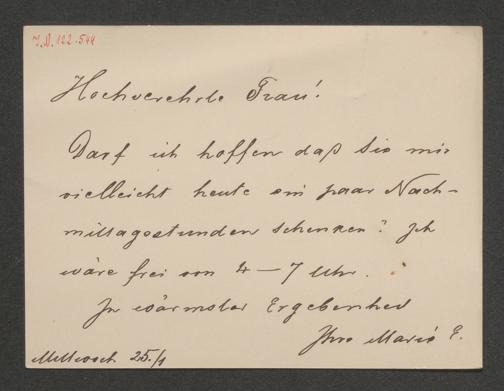 I.N. 122.544
Hochverehrte Frau!
Darf ich hoffen daß Sie mir
vielleicht heute ein paar Nach-
mittagsstunden schenken? Ich
wäre frei von 4 – 7 Uhr.
In wärmster Ergebenheit
Ihre Marie E.
Mittwoch 25./1